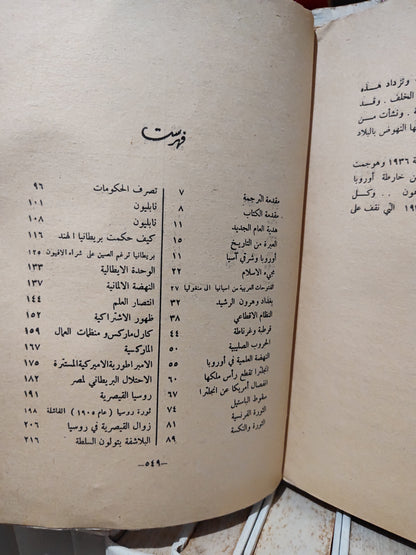 وتزداد هذه
المخلف . وقد
. ونشأت من
ها النهوض بالبلاد
١٩٣٦ وهوجمت
من خارطة أوروبا
هون . . وكل
١٩٣ التي نقف على
فهرست
مقدمة الترجمة ٧
مقدمة الكتاب ٨
هدية العام الجديد ١١
العبرة من التاريخ ١٥
أوروبا وشرقي آسيا
مجيء الاسلام ٢٢
الفتوحات العربية من اسبانيا الى منغوليا ٢٧
بغداد وهرون الرشيد ٣٢
النظام الاقطاعي ٣٨
قرطبة وغرناطة ٤٤
الحروب الصليبية ٥٠
النهضة العلمية في أوروبا ٥٥
انجلترا تقطع رأس ملكها ٦٠
انفصال أمريكا عن انجلترا ٦٧
سقوط الباستيل ٧٤
الثورة الفرنسية ٨١
الثورة والنكسة ٨٩
تصرف الحكومات ٩٦
نابليون ١٠١
نابليون ١٠٨
كيف حكمت بريطانيا الهند ١١٦
بريطانيا ترغم الصين على شراء الافيون ١٢٥
الوحدة الايطالية ١٣٣
النهضة الالمانية ١٣٧
انتصار العلم ١٤٤
ظهور الاشتراكية ١٥٢
كارل ماركس و منظمات العمال ١٥٩
الماركسية ١٦٧
الامبراطورية الاميركية المستترة ١٧٥
الاحتلال البريطاني لمصر ١٨٢
روسيا القيصرية ١٩١
ثورة روسيا (عام ١٩٠٥) الفاشلة ١٩٨
زوال القيصرية في روسيا ٢٠٦
البلاشفة يتولون السلطة ٢١٦
-٥٤٩-